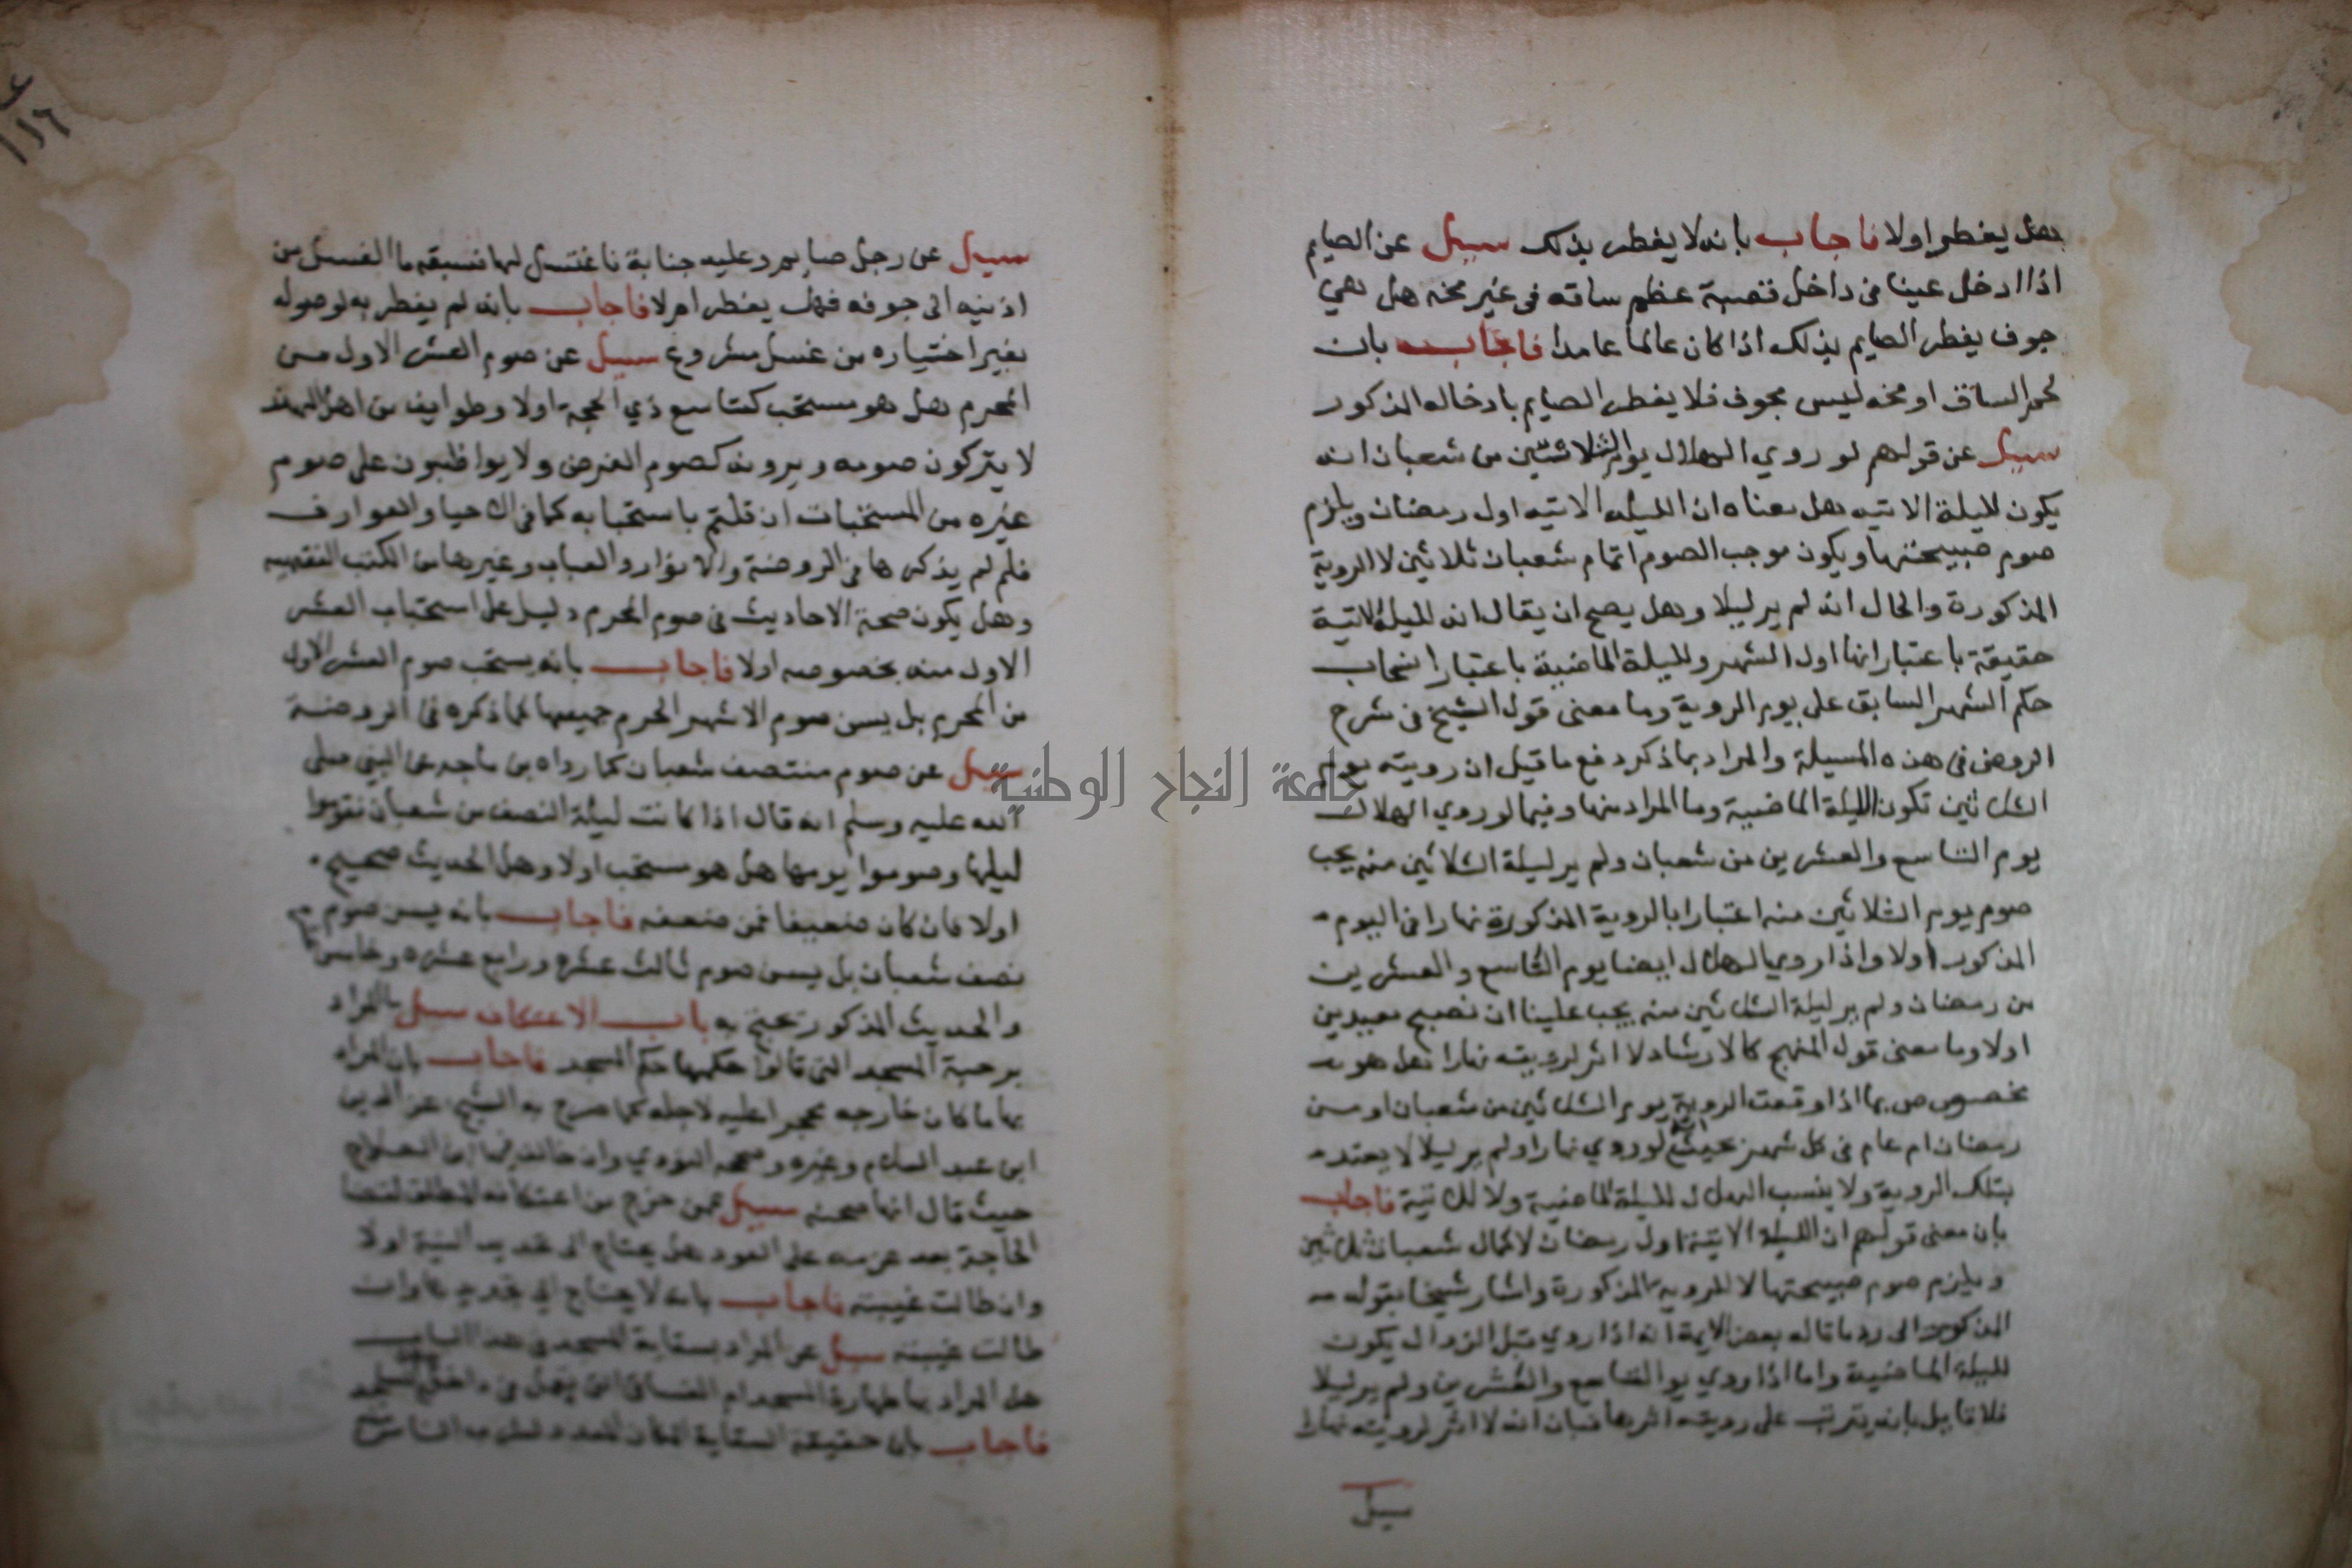 هل يفطر اولا فاجاب بانه لا يفطر بذلك سيل عن الصايم
اذا ادخل عينا في داخل قصبة عظم ساقه في غير مخه هل هي
جوف يفطر الصايم بذلك اذا كان عالما عامدا فاجاب بان
لحم الساق او مخه ليس بجوف فلا يفطر الصايم بادخاله المذكور
سيل عن قولهم لو روي الهلال يوم الثلاثين من شعبان انه
يكون لليلة الاتيه هل معناه ان الليله الاتيه اول رمضان ويلزم
صوم صبيحتها ويكون موجب الصوم اتمام شعبان ثلاثين لا الروية
المذكورة والحال انه لم ير ليلا وهل يصح ان يقال انه لليلة الاتية
حقيقة باعتبار انها اول الشهر ولليلة الماضية باعتبار انسحاب
حكم الشهر السابق على يوم الروية وما معنى قول الشيخ في شرح
الروض في هذه المسيلة والمراد بما ذكر دفع ما قيل ان رويته يوم
الثلاثين تكون لليلة الماضية وما المراد منها وفيما لو روي الهلال
يوم التاسع والعشرين من شعبان ولم ير ليلة الثلاثين منه يجب
صوم يوم الثلاثين منه اعتبارا بالروية المذكورة نهارا في اليوم
المذكور اولا واذا روي الهلال ايضا يوم التاسع والعشرين
من رمضان ولم ير ليلة الثلاثين منه يجب علينا ان نصبح معيدين
اولا وما معنى قول المنهج كالارشاد لا اثر لرويته نهارا هل هو
مخصوص بما اذا وقعت الروية يوم الثلاثين من شعبان او من
رمضان ام عام في كل شهر بحيث لو روي نهارا ولم ير ليلا لا يعتد
بتلك الروية ولا ينسب الهلال لليلة الماضية ولا للاتية فاجاب
بان معنى قولهم ان الليلة الاتية اول رمضان لاكمال شعبان ثلاثين
ويلزم صوم صبيحتها لا للروية المذكورة واشار شيخنا بقوله
المذكور الى رد ما قاله بعض الايمة انه اذا روي قبل الزوال يكون
لليلة الماضية واما اذا روي يوم التاسع والعشرين ولم ير ليلا
فلا قايل بانه يترتب على رويته اثرها فبان انه لا اثر لرويته نهارا
سيل
سيل عن رجل صايم وعليه جنابة فاغتسل لها فسبقه ما الغسل من
اذنيه الى جوفه فهل يفطر ام لا فاجاب بانه لم يفطر به لوصوله
بغير اختياره من غسل مشروع سيل عن صوم العشر الاول من
المحرم هل هو مستحب كتاسع ذي الحجة اولا وطوايف من اهل الهند
لا يتركون صومه ويرونه كصوم الفرض ولا يواظبون على صوم
غيره من المستحبات ان قلتم باستحبابه كما في الاحيا والعوارف
فلم لم يذكرها في الروضة والانوار والعباب وغيرها من الكتب الفقهيه
وهل يكون صحة الاحاديث في صوم المحرم دليل على استحباب العشر
الاول منه بخصوصه اولا فاجاب بانه يستحب صوم العشر الاول
من المحرم بل يسن صوم الاشهر الحرم جميعها كما ذكره في الروضة
سيل عن صوم منتصف شعبان كما رواه بن ماجه عن النبي صلى
الله عليه وسلم انه قال اذا كانت ليلة النصف من شعبان فقوموا
ليلها وصوموا يومها هل هو مستحب اولا وهل الحديث صحيح
اولا فان كان ضعيفا فمن ضعفه فاجاب بانه يسن صوم
نصف شعبان بل يسن صوم ثالث عشره ورابع عشره وخامس
والحديث المذكور يحتج به باب الاعتكاف سيل ما المراد
برحبة المسجد التي قالوا حكمها حكم المسجد فاجاب بان المراد
بها ما كان خارجه محجرا عليه لاجله كما صرح به الشيخ عز الدين
ابن عبد السلام وغيره وصححه النووي وان خالف فيها ابن الصلاح
حيث قال انها صحنه سيل عمن خرج من اعتكافه المطلق لقضا
الحاجة بعد عزمه على العود هل يحتاج الى تجديد النية اولا
وان طالت غيبته فاجاب بانه لا يحتاج الى تجديدها وان
طالت غيبته سيل عن المراد بسقاية المسجد في هذا الباب
هل المراد بها طهارة المسجد ام
فاجاب بان حقيقة السقاية المكان المعد
جامعة النجاح الوطنية